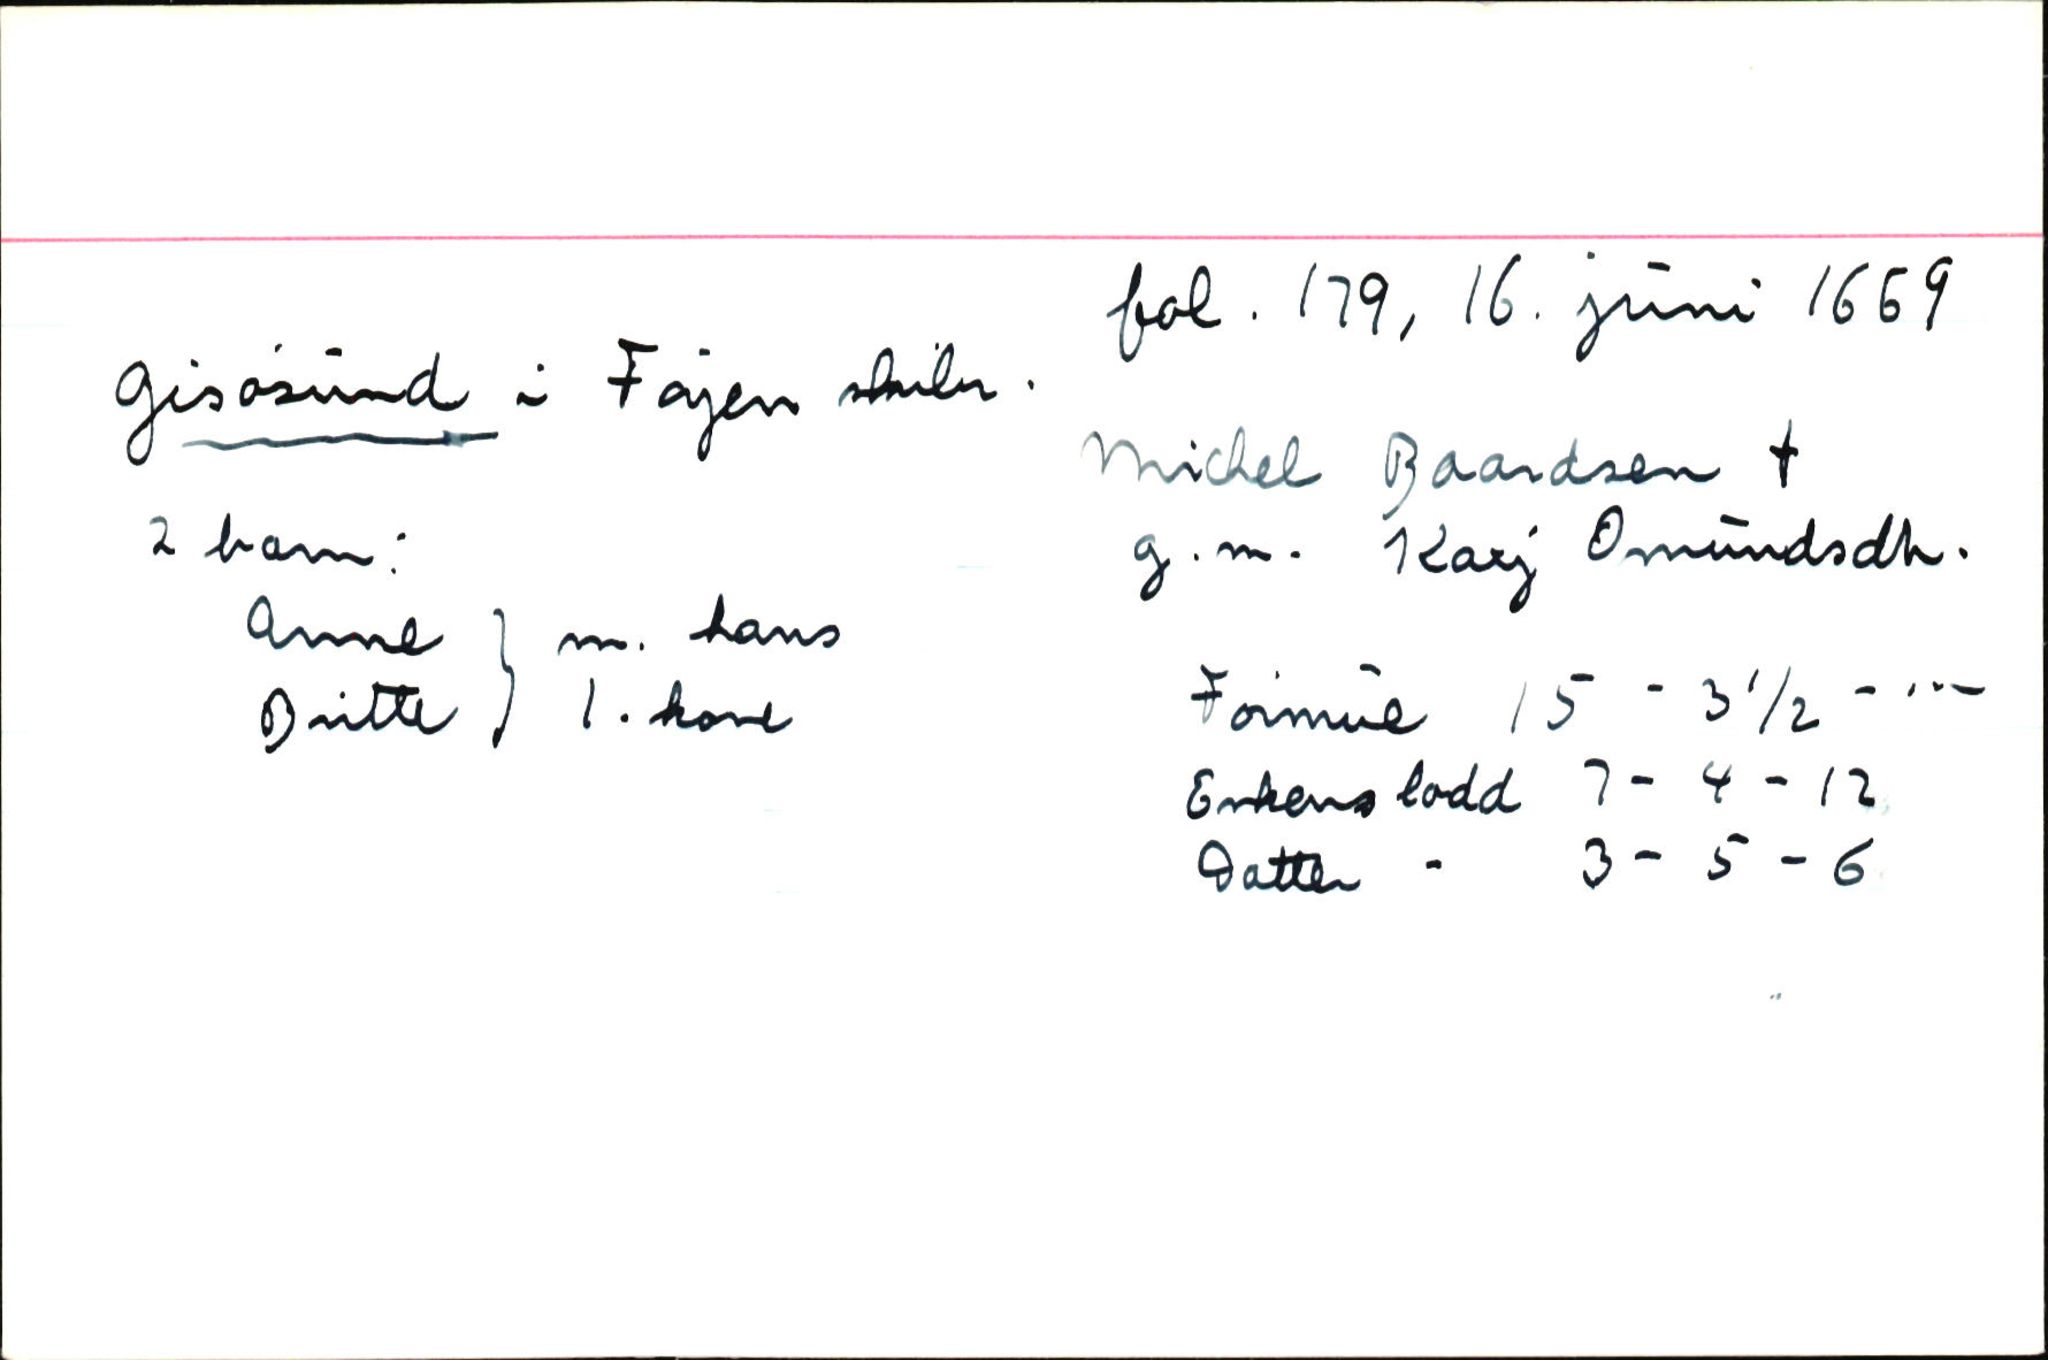 fol. 179, 16. juni 1669
Gisøsund i Føyen skibr.
Michel Baardsen †
g. m. Karj Omundsdtr.
2 barn:
Anne } m. hans
Britte } 1. kone
Formue 15 - 3 1/2 - "-
Enkens lodd 7 - 4 - 12
Datter - 3 - 5 - 6